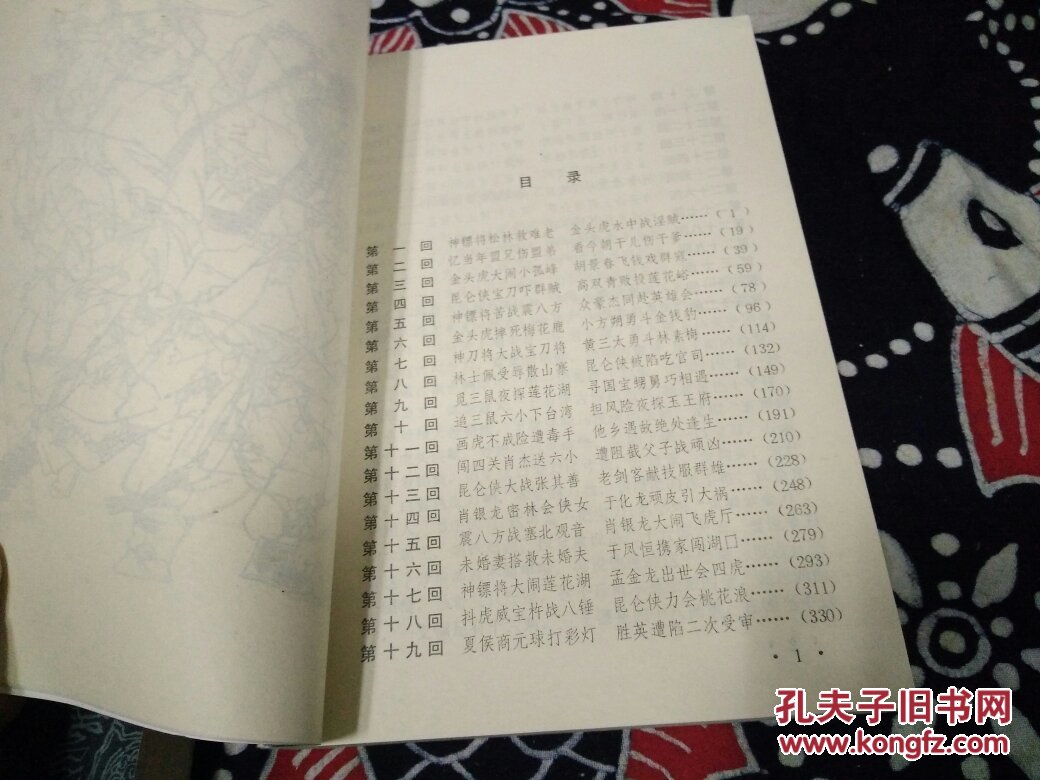 目 录
第一回 神镖将松林救难老 金头虎水中战淫贼……( 1 )
第二回 忆当年盟兄伤盟弟 看今朝干儿伤干爹……( 19 )
第三回 金头虎大闹小孤峰 胡景春飞钱戏群寇……( 39 )
第四回 昆仑侠宝刀吓群贼 高双青败投莲花峪……( 59 )
第五回 神镖将苦战震八方 众豪杰同赴英雄会……( 78 )
第六回 金头虎摔死梅花鹿 小方朔勇斗金钱豹……( 96 )
第七回 神刀将大战宝刀将 黄三太勇斗林素梅……(114)
第八回 林士佩受辱散山寨 昆仑侠被陷吃官司……(132)
第九回 觅三鼠夜探莲花湖 寻国宝甥舅巧相遇……(149)
第十回 追三鼠六小下台湾 担风险夜探王王府……(170)
第十一回 画虎不成险遭毒手 他乡遇故绝处逢生……(191)
第十二回 闯四关肖杰送六小 遭阻截父子战顽凶……(210)
第十三回 昆仑侠大战张其善 老剑客献技服群雄……(228)
第十四回 肖银龙密林会侠女 于化龙顽皮引大祸……(248)
第十五回 震八方战塞北观音 肖银龙大闹飞虎厅……(263)
第十六回 未婚妻搭救未婚夫 于凤恒携家闯湖口……(279)
第十七回 神镖将大闹莲花湖 孟金龙出世会四虎……(293)
第十八回 抖虎威宝杵战八锤 昆仑侠力会桃花浪……(311)
第十九回 夏侯商元球打彩灯 胜英遭陷二次受审……(330)
· 1 ·
孔夫子旧书网
www.kongfz.com